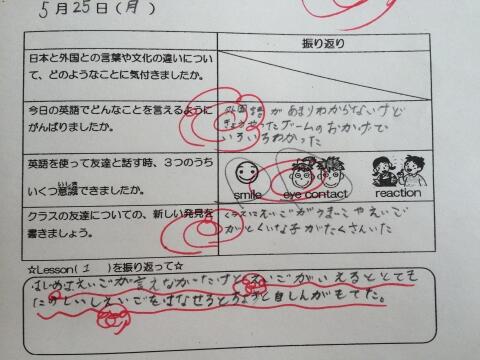 5月25日(月)
振り返り
日本と外国との言葉や文化の違いについ
て、どのようなことに気付きましたか。
今日の英語でどんなことを言えるように
がんばりましたか。
外国語があまりわからないけど
きょうやったゲームのおかげで
いろいろわかった
英語を使って友達と話す時、3つのうち
いくつ意識できましたか。
いしき
smile eye contact reaction
クラスの友達についての、新しい発見を
書きましょう。
クラスにえいごがうまいこやえいご
がとくいな子がたくさんいた
☆Lesson( 1 )を振り返って☆
はじめはえいごが言えなかったけどえいごがいえるととても
たのしいしえいごをはなせるとちょっと自しんがもてた。